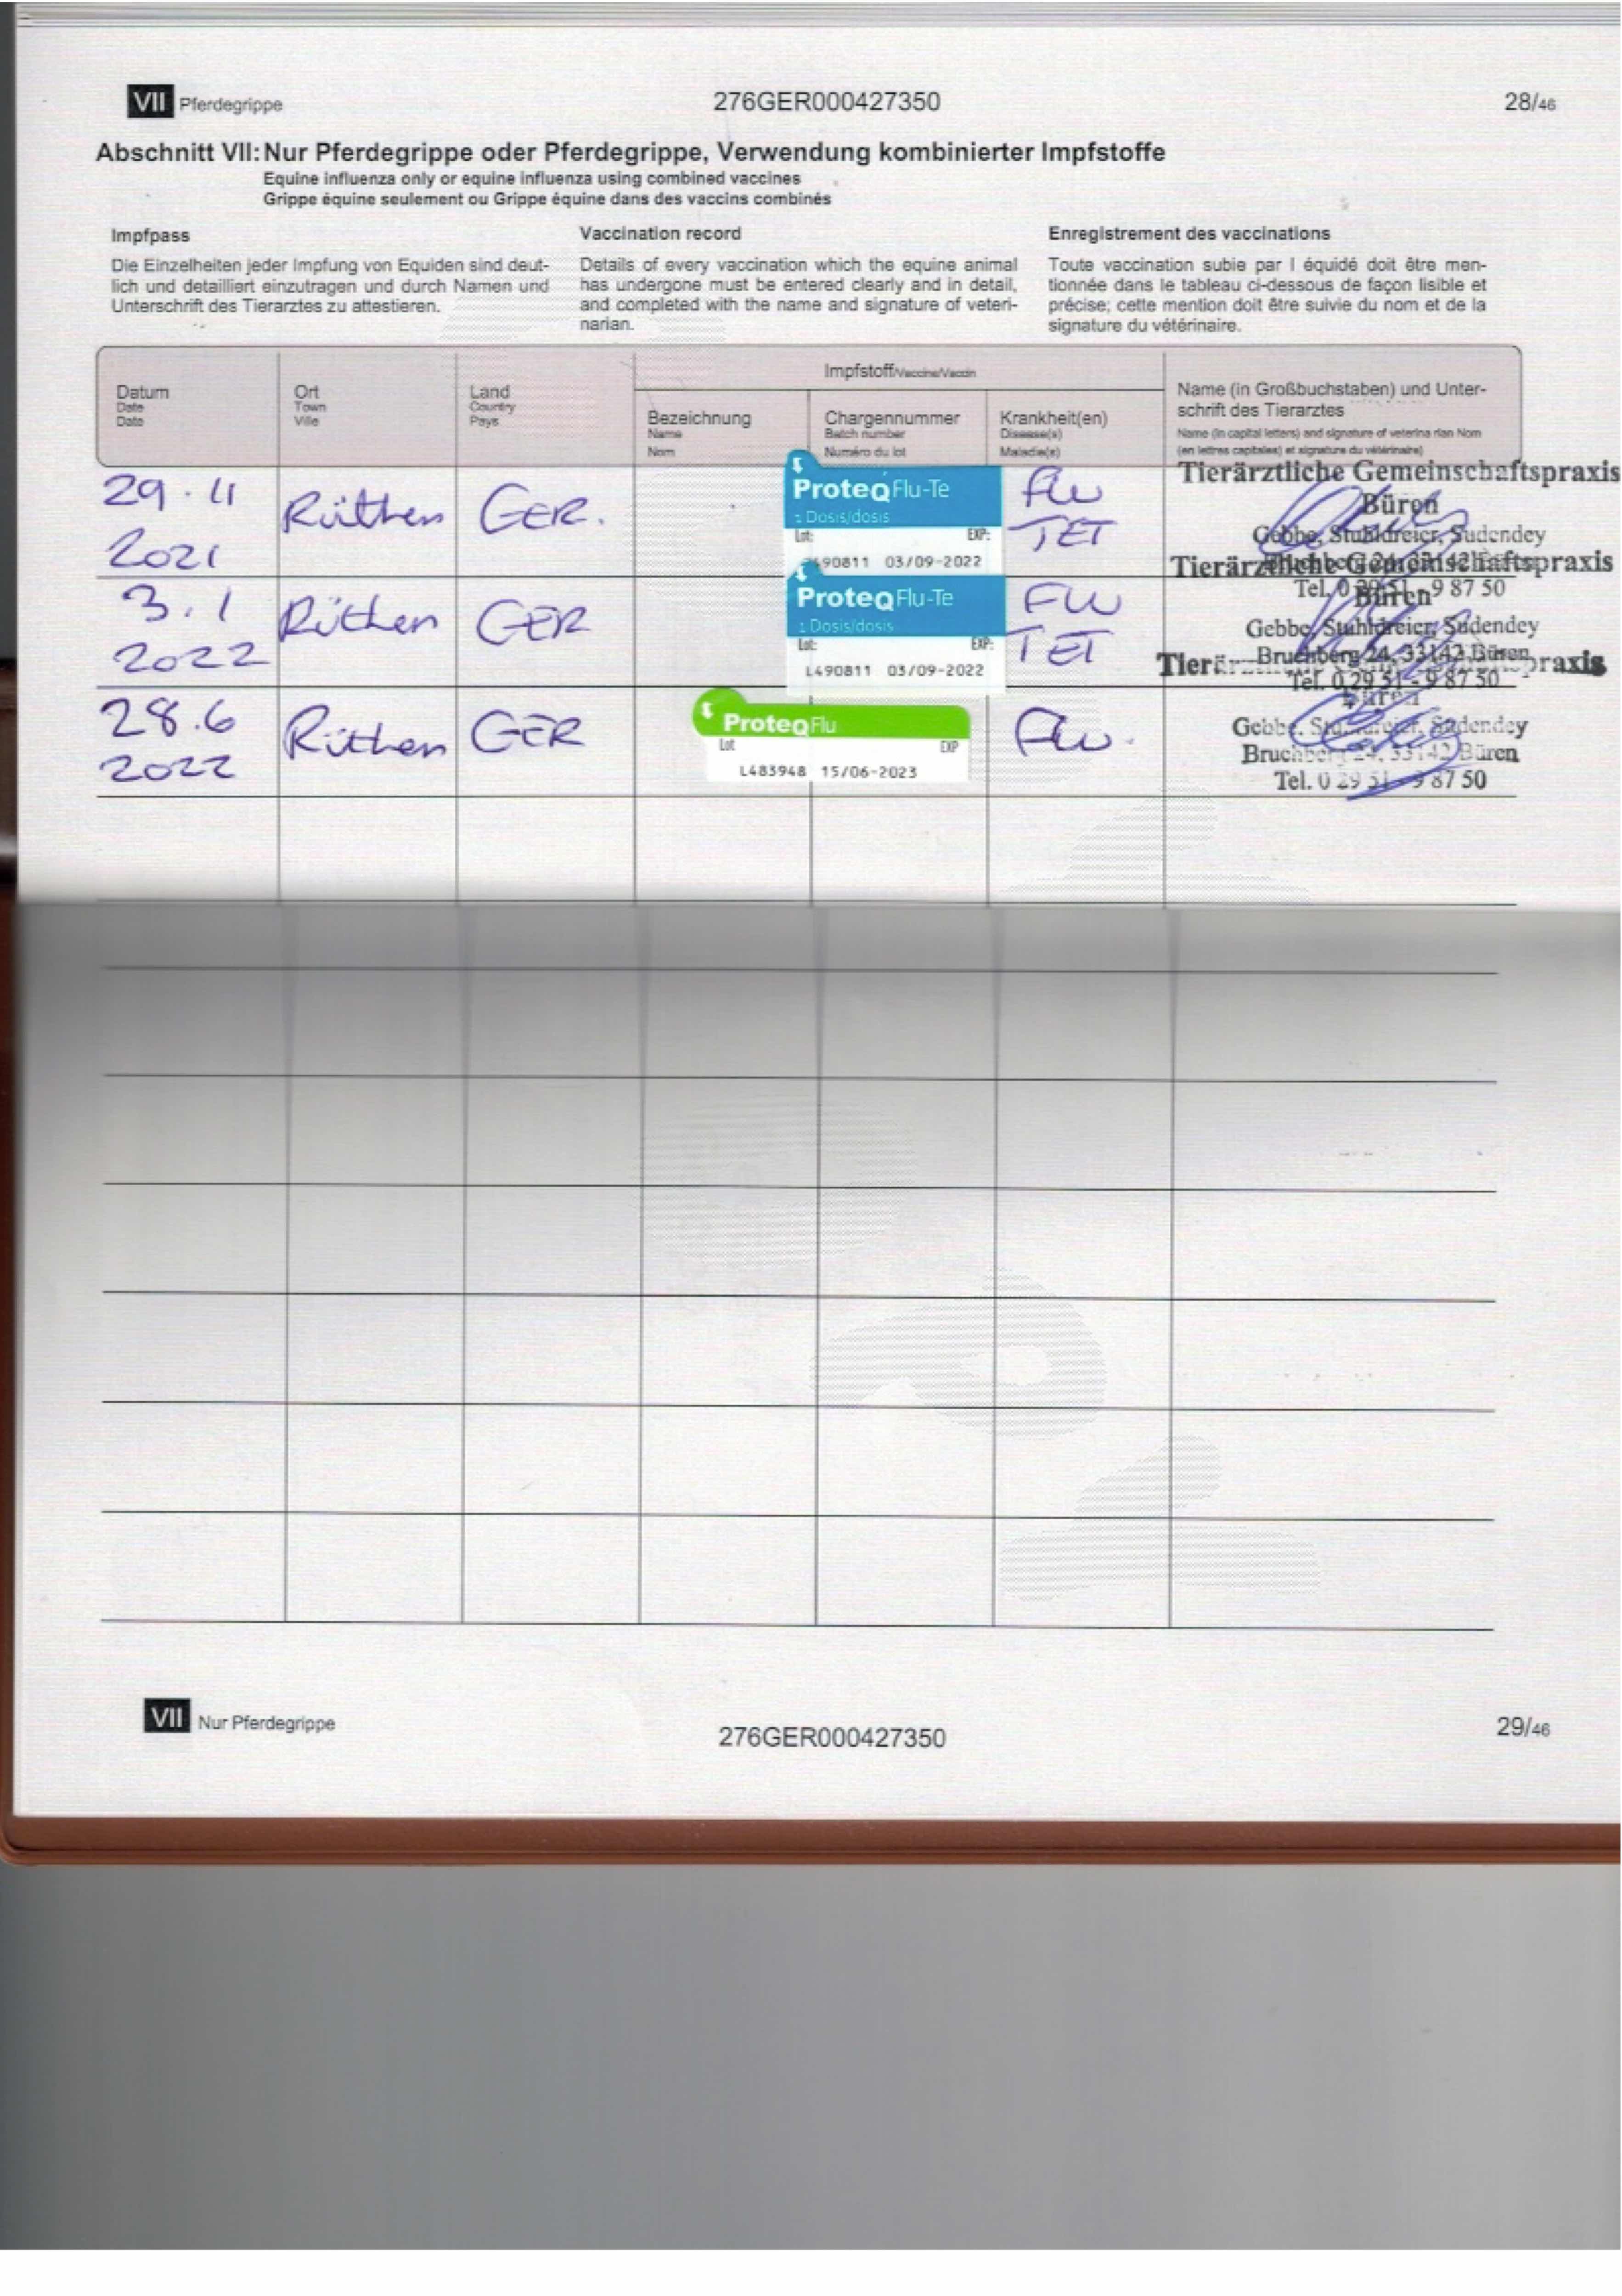 VII Pferdegrippe 276GER000427350 28/46
Abschnitt VII: Nur Pferdegrippe oder Pferdegrippe, Verwendung kombinierter Impfstoffe
Equine influenza only or equine influenza using combined vaccines
Grippe équine seulement ou Grippe équine dans des vaccins combinés
Impfpass
Die Einzelheiten jeder Impfung von Equiden sind deut-
lich und detailliert einzutragen und durch Namen und
Unterschrift des Tierarztes zu attestieren.
Vaccination record
Details of every vaccination which the equine animal
has undergone must be entered clearly and in detail,
and completed with the name and signature of veteri-
narian.
Enregistrement des vaccinations
Toute vaccination subie par l équidé doit être men-
tionnée dans le tableau ci-dessous de façon lisible et
précise; cette mention doit être suivie du nom et de la
signature du vétérinaire.
Datum
Date
Date
Ort
Town
Ville
Land
Country
Pays
Impfstoff/Vaccine/Vaccin
Bezeichnung
Name
Nom
Chargennummer
Batch number
Numéro du lot
Krankheit(en)
Disease(s)
Maladie(s)
Name (in Großbuchstaben) und Unter-
schrift des Tierarztes
Name (in capital letters) and signature of veterina rian Nom
(en lettres capitales) et signature du vétérinaire)
29.11
2021
Rüthen
GER.
ProteqFlu-Te
1 Dosis/dosis
Lot: EXP:
490811 03/09-2022
Flu
TET
Tierärztliche Gemeinschaftspraxis
Büren
Gebbe, Stuhldreier, Sudendey
Tel. 0 29 51 - 9 87 50
3.1
2022
Rüthen
GER
ProteqFlu-Te
1 Dosis/dosis
Lot: EXP:
L490811 03/09-2022
FLU
TET
Tierärztliche Gemeinschaftspraxis
Büren
Gebbe, Stuhldreier, Sudendey
Bruchberg 24, 33142 Büren
Tel. 0 29 51 - 9 87 50
28.6
2022
Rüthen
GER
ProteqFlu
Lot EXP
L483948 15/06-2023
Flu.
praxis
Büren
Gebbe, Stuhldreier, Sudendey
Bruchberg 24, 33142 Büren
Tel. 0 29 51 - 9 87 50
VII Nur Pferdegrippe 276GER000427350 29/46